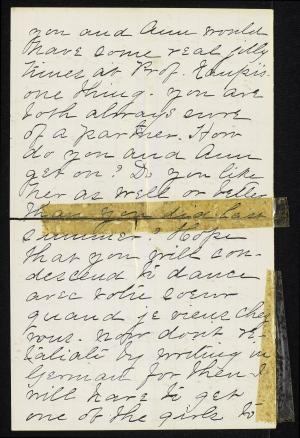 you and Ann would
have some real jolly
times at Prof.
one thing. you are
both always sure
of a partner. How
do you and Ann
get on? Do you like
her as well or better
than you did last
summer? Hope
that you will con-
descend to dance
avec votre soeur
quand je viens chez
vous. now dont re-
taliate by writing in
German for then I
will have to get
one of the girls to